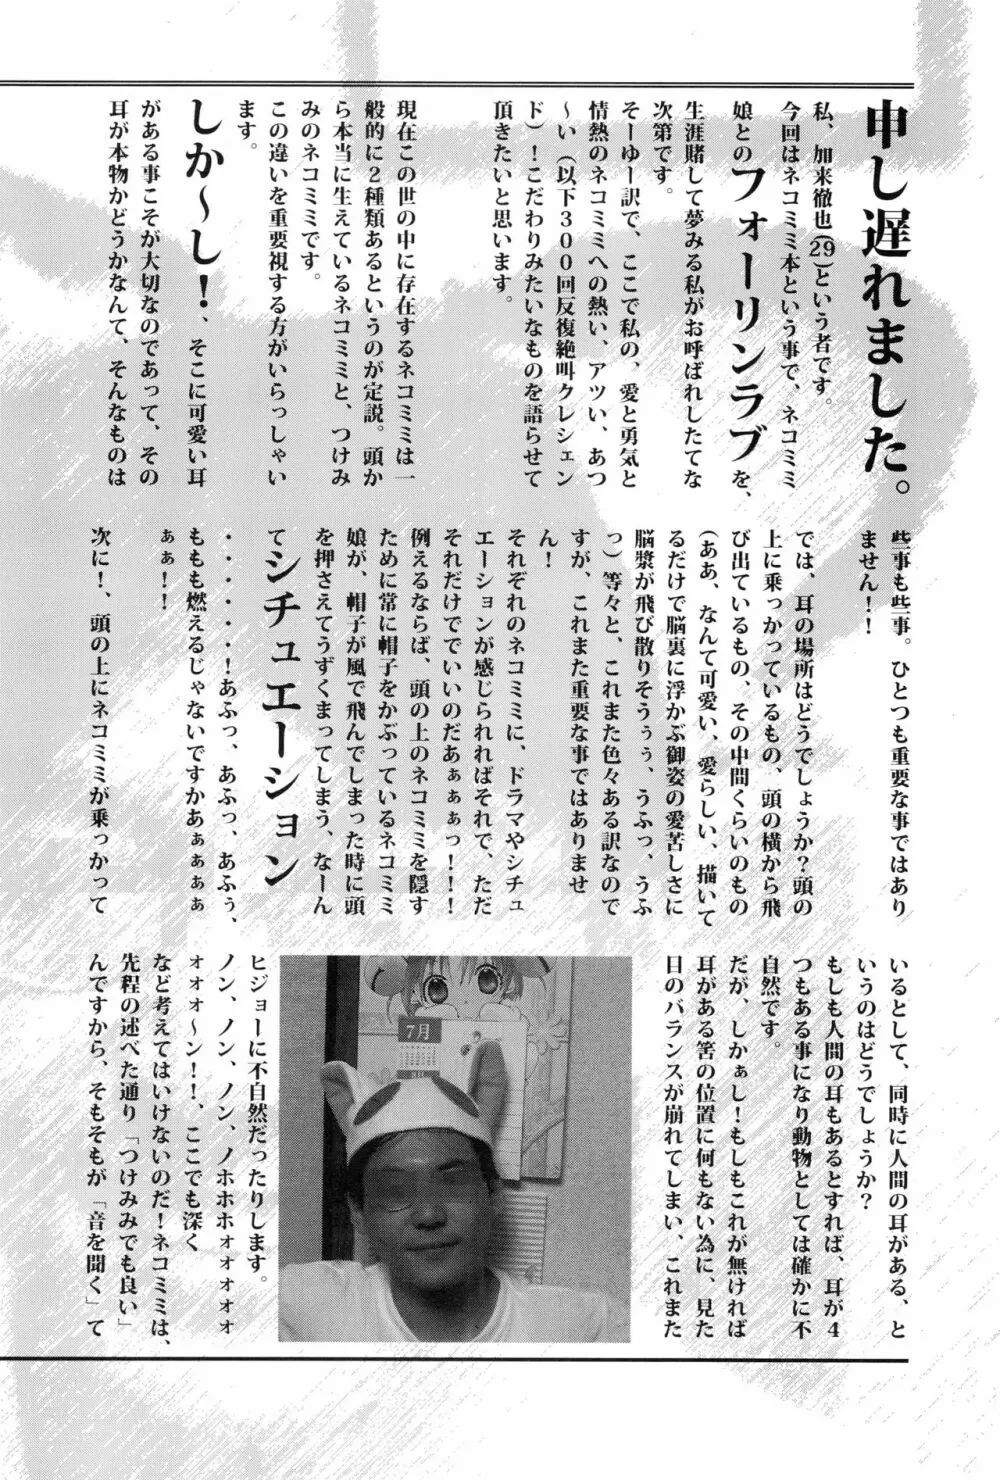 申し遅れました。
私、加来徹也(29)という者です。
今回はネコミミ本という事で、ネコミミ
娘とのフォーリンラブを、
生涯賭して夢みる私がお呼ばれしたてな
次第です。
そーゆー訳で、ここで私の、愛と勇気と
情熱のネコミミへの熱い、アツい、あつ
〜い(以下300回反復絶叫クレシェン
ド)!こだわりみたいなものを語らせて
頂きたいと思います。
現在この世の中に存在するネコミミは一
般的に2種類あるというのが定説。頭か
ら本当に生えているネコミミと、つけみ
みのネコミミです。
この違いを重要視する方がいらっしゃい
ます。
しか〜し!、そこに可愛い耳
がある事こそが大切なのであって、その
耳が本物かどうかなんて、そんなものは
些事も些事。ひとつも重要な事ではあり
ません!!
では、耳の場所はどうでしょうか?頭の
上に乗っかっているもの、頭の横から飛
び出ているもの、その中間くらいのもの
(ああ、なんて可愛い、愛らしい、描いて
るだけで脳裏に浮かぶ御姿の愛苦しさに
脳漿が飛び散りそうぅぅ、うふっ、うふ
っ)等々と、これまた色々ある訳なので
すが、これまた重要な事ではありませ
ん!
それぞれのネコミミに、ドラマやシチュ
エーションが感じられればそれで、ただ
それだけででいいのだあぁぁぁっ!!!
例えるならば、頭の上のネコミミを隠す
ために常に帽子をかぶっているネコミミ
娘が、帽子が風で飛んでしまった時に頭
を押さえてうずくまってしまう、なーん
てシチュエーション
・・・・・・!あふっ、あふっ、あふぅ、
ももも燃えるじゃないですかあぁぁぁぁ
ぁぁ!!
次に!、頭の上にネコミミが乗っかって
いるとして、同時に人間の耳がある、と
いうのはどうでしょうか?
もしも人間の耳もあるとすれば、耳が4
つもある事になり動物としては確かに不
自然です。
だが、しかぁし!もしもこれが無ければ
耳がある筈の位置に何もない為に、見た
目のバランスが崩れてしまい、これまた
ヒジョーに不自然だったりします。
ノン、ノン、ノン、ノホホホォォォォォ
ォォォ〜ン!!、ここでも深く
など考えてはいけないのだ!ネコミミは、
先程の述べた通り「つけみみでも良い」
んですから、そもそもが「音を聞く」て
7月